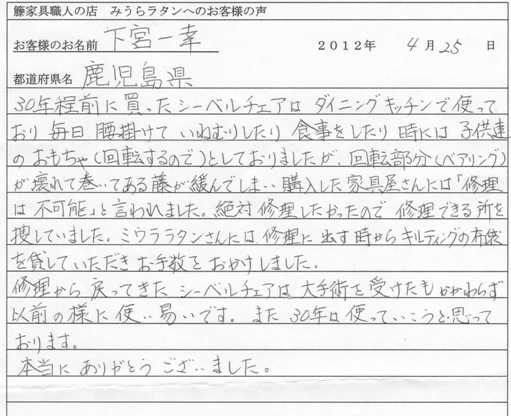 籐家具職人の店　みうらラタンへのお客様の声
お客様のお名前　下宮一幸　２０１２年　4月25日
都道府県名　鹿児島県
30年程前に買ったシーベルチェアはダイニングキッチンで使って
おり毎日腰掛けていねむりしたり食事をしたり時には子供達
のおもちゃ(回転するので)としておりましたが、回転部分(ベアリング)
が壊れて巻いてある藤が緩んでしまい購入した家具屋さんには「修理
は不可能」と言われました。絶対修理したかったので修理できる所を
捜していました。ミウララタンさんには修理に出す時からキルティングの布袋
を貸していただきお手数をおかけしました。
修理から戻ってきたシーベルチェアは大手術を受けたもかかわらず
以前の様に使い易いです。また30年は使っていこうと思って
おります。
本当にありがとうございました。